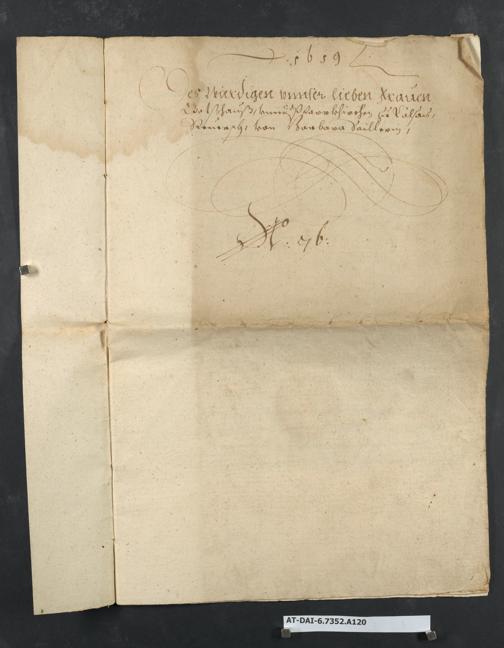 1659
Des Würdigen vnnser lieben Frauen
Gotshauß, vnnd Pfarrkhirchen
von Barbara Saillerin,
No: 76:
AT-DAI-6.7352.A120